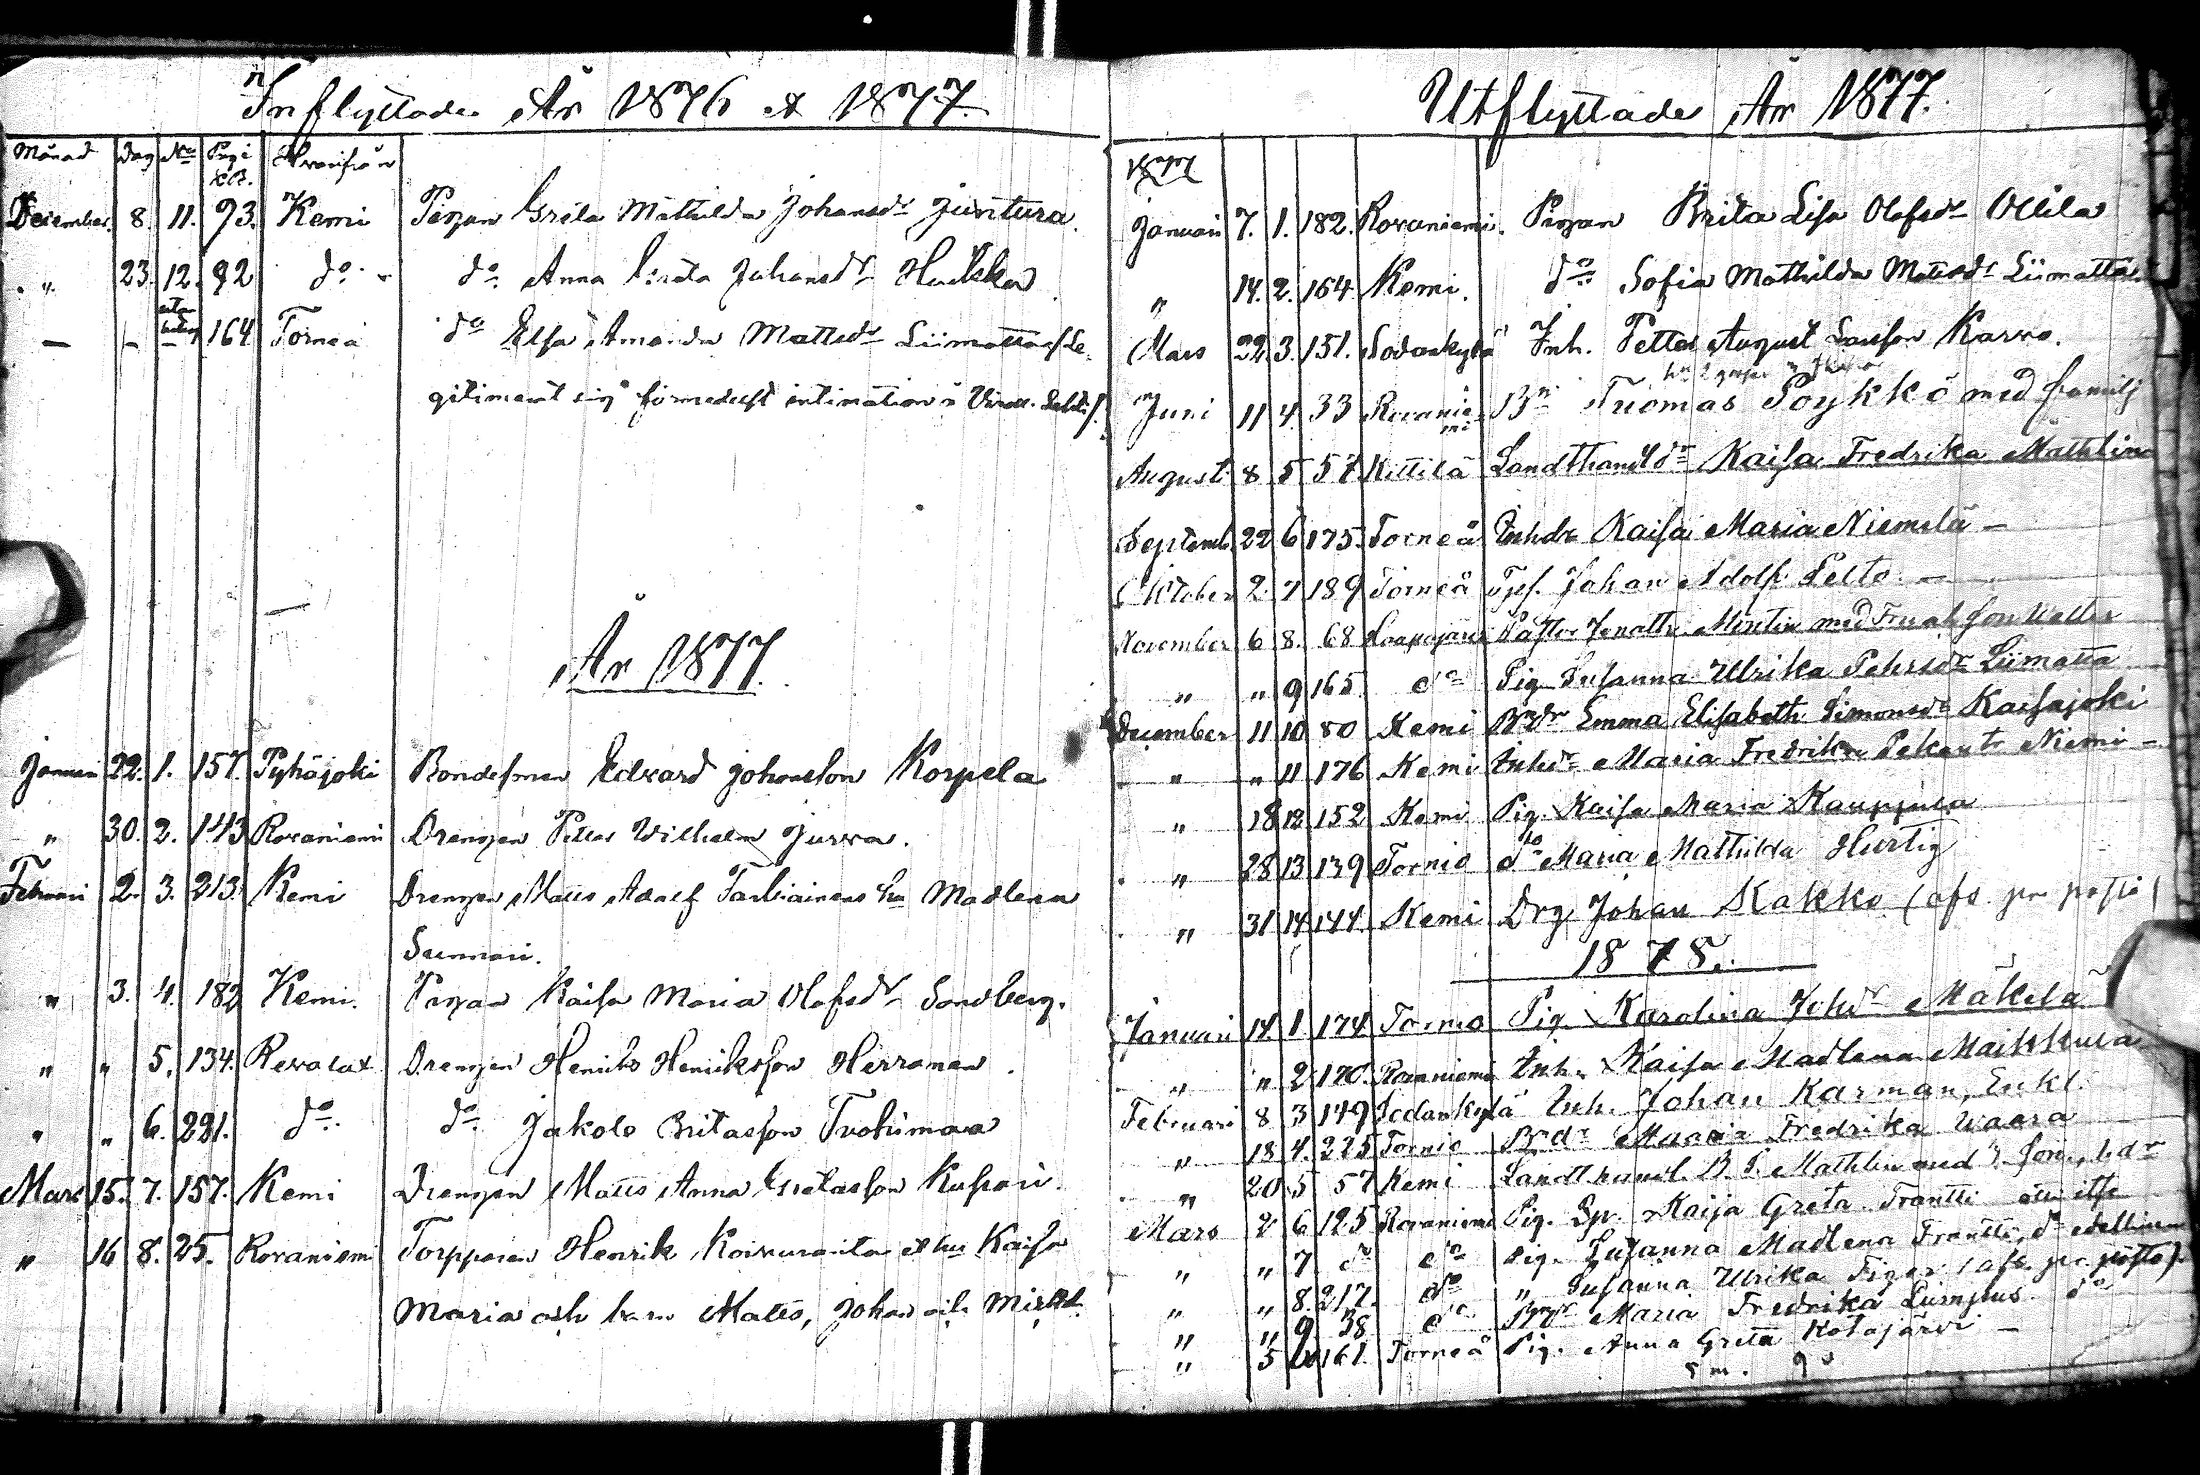 Inflyttade År 1876 & 1877.
Månad Dag No Pag i Hvarifrån
K.B.
December 8. 11. 93. Kemi Pigan Greta Mathilda Johansdr Juntura.
" 23. 12. 92 do Anna Greta Johansdr
— — 164 Torneå do Elsa Amanda Mattsdr Liimatta
sig förmedelst intimation i
År 1877.
Januari 22. 1. 157. Pyhäjoki Bondesonen Edvard Johansson Korpela
" 30. 2. 143 Rovaniemi Drengen Petter Wilhelm Jurva.
Februari 2. 3. 213. Kemi Drengen Matts Adolf Tarkiainens hu Madlena
Sunnari.
" 3. 4. 182 Kemi. Pigan Kaisa Maria Olofsdr Sandberg.
" " 5. 134. Revolax Drengen Henrik Henriksson Herranen.
" " 6. 221. do do Jakob Britasson Tuohimaa
Mars 15. 7. 157. Kemi Drengen Matts Anna Gretasson Kupari.
" 16 8. 25. Rovaniemi Torpparen Henrik Koivuranta & hu Kaisa
Maria och barn Matts, Johan och
Utflyttade År 1877.
1877
Januari 7. 1. 182. Rovaniemi. Pigan Brita Lisa Olofsdr Ollila
" 14. 2. 164. Kemi. do Sofia Mathilda Mattsdr Liimatta
Mars 22 3. 151. Sodankylä Inh. Petter August Larsson Karvo.
Juni 11 4. 33 Rovaniemi Bn Tuomas Poykkö med familj
August 8 5 57 Kittilä Landthandldr Kaisa Fredrika Mathlin
Septemb 22 6 175. Torneå Inhdr Kaisa Maria Niemelä —
October 2. 7 189 Torneå Johan Adolf Lelto. —
November 6 8. 68 Haapajärvi Pastor Jonath. med Fru & son Walter
" " 9 165. do Pig Susanna Ulrika Pehrsdr Liimatta
December 11 10 80 Kemi Bdr Emma Elisabeth Simonsdr Kaisajoki
" " 11 176 Kemi Inhdr Maria Fredrika Niemi —
" 18 12 152 Kemi Pig. Kaisa Maria Kauppila
" 28 13 139 Tornio do Maria Mathilda Hurtig
" 31 14 144. Kemi Drg Johan Kakko (afs. pr posto)
1878.
Januari 14. 1. 174 Tornio Pig. Karolina Johdr Mäkelä
" " 2 170. Rovaniemi Inh. Kaisa Madlena Maikkula
Februari 8 3 149 Sodankylä Inh. Johan Karman, Enkl.
" 18 4. 225 Tornio Bdr Maria Fredrika Waara
" 20 5 57 Kemi Landthandl. B. P. Mathlin med
Mars 2 6 125 Rovaniemi Pig. Kaija Greta Frantti
" " 7 do do Pig. Susanna Madlena Frantti,
" " 8. 217. do " Susanna Ulrika (afs. pr posto).
" " 9 38 do Maria Fredrika do
" 5 10 161. Torneå Pig. Anna Greta Kotajärvi —